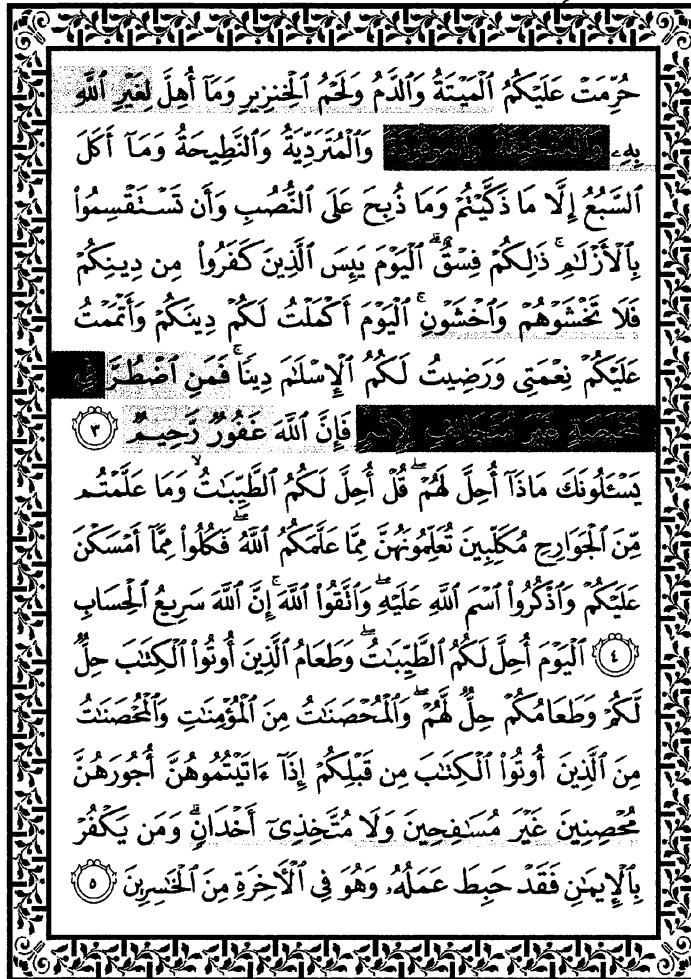 حُرِّمَتْ عَلَيْكُمُ ٱلْمَيْتَةُ وَٱلدَّمُ وَلَحْمُ ٱلْخِنزِيرِ وَمَآ أُهِلَّ لِغَيْرِ ٱللَّهِ
بِهِۦ وَٱلْمُنْخَنِقَةُ وَٱلْمَوْقُوذَةُ وَٱلْمُتَرَدِّيَةُ وَٱلنَّطِيحَةُ وَمَآ أَكَلَ
ٱلسَّبُعُ إِلَّا مَا ذَكَّيْتُمْ وَمَا ذُبِحَ عَلَى ٱلنُّصُبِ وَأَن تَسْتَقْسِمُوا۟
بِٱلْأَزْلَٰمِ ۚ ذَٰلِكُمْ فِسْقٌ ۗ ٱلْيَوْمَ يَئِسَ ٱلَّذِينَ كَفَرُوا۟ مِن دِينِكُمْ
فَلَا تَخْشَوْهُمْ وَٱخْشَوْنِ ۚ ٱلْيَوْمَ أَكْمَلْتُ لَكُمْ دِينَكُمْ وَأَتْمَمْتُ
عَلَيْكُمْ نِعْمَتِى وَرَضِيتُ لَكُمُ ٱلْإِسْلَٰمَ دِينًا ۚ فَمَنِ ٱضْطُرَّ فِى
مَخْمَصَةٍ غَيْرَ مُتَجَانِفٍ لِّإِثْمٍ فَإِنَّ ٱللَّهَ غَفُورٌ رَّحِيمٌ ٣
يَسْـَٔلُونَكَ مَاذَآ أُحِلَّ لَهُمْ ۖ قُلْ أُحِلَّ لَكُمُ ٱلطَّيِّبَٰتُ ۙ وَمَا عَلَّمْتُم
مِّنَ ٱلْجَوَارِحِ مُكَلِّبِينَ تُعَلِّمُونَهُنَّ مِمَّا عَلَّمَكُمُ ٱللَّهُ ۖ فَكُلُوا۟ مِمَّآ أَمْسَكْنَ
عَلَيْكُمْ وَٱذْكُرُوا۟ ٱسْمَ ٱللَّهِ عَلَيْهِ ۖ وَٱتَّقُوا۟ ٱللَّهَ ۚ إِنَّ ٱللَّهَ سَرِيعُ ٱلْحِسَابِ
٤ ٱلْيَوْمَ أُحِلَّ لَكُمُ ٱلطَّيِّبَٰتُ ۖ وَطَعَامُ ٱلَّذِينَ أُوتُوا۟ ٱلْكِتَٰبَ حِلٌّ
لَّكُمْ وَطَعَامُكُمْ حِلٌّ لَّهُمْ ۖ وَٱلْمُحْصَنَٰتُ مِنَ ٱلْمُؤْمِنَٰتِ وَٱلْمُحْصَنَٰتُ
مِنَ ٱلَّذِينَ أُوتُوا۟ ٱلْكِتَٰبَ مِن قَبْلِكُمْ إِذَآ ءَاتَيْتُمُوهُنَّ أُجُورَهُنَّ
مُحْصِنِينَ غَيْرَ مُسَٰفِحِينَ وَلَا مُتَّخِذِىٓ أَخْدَانٍ ۗ وَمَن يَكْفُرْ
بِٱلْإِيمَٰنِ فَقَدْ حَبِطَ عَمَلُهُۥ وَهُوَ فِى ٱلْـَٔاخِرَةِ مِنَ ٱلْخَٰسِرِينَ ٥